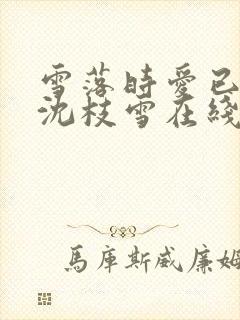 雪落時愛已
沈枝雪在綫
馬庫斯威廉姆